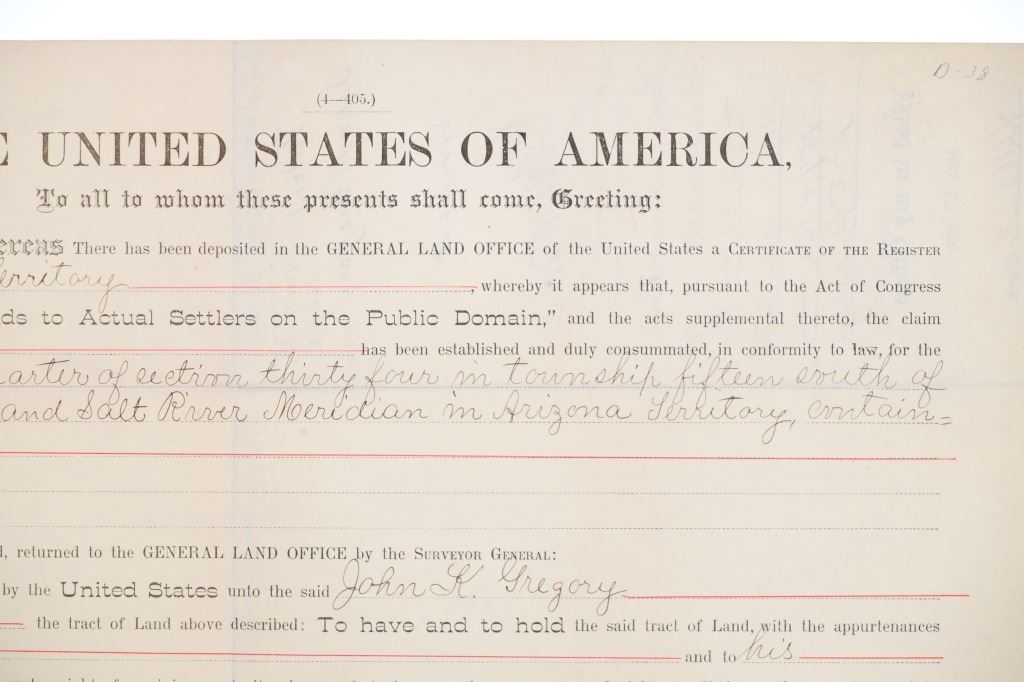 D-38
(4—405.)
E UNITED STATES OF AMERICA,
To all to whom these presents shall come, Greeting:
ereas There has been deposited in the GENERAL LAND OFFICE of the United States a CERTIFICATE OF THE REGISTER
erritory, whereby it appears that, pursuant to the Act of Congress
ds to Actual Settlers on the Public Domain,” and the acts supplemental thereto, the claim
has been established and duly consummated, in conformity to law, for the
arter of section thirty four in township fifteen south of
and Salt River Meridian in Arizona Territory, contain=
d, returned to the GENERAL LAND OFFICE by the SURVEYOR GENERAL:
by the United States unto the said John K. Gregory
the tract of Land above described: To have and to hold the said tract of Land, with the appurtenances
and to his